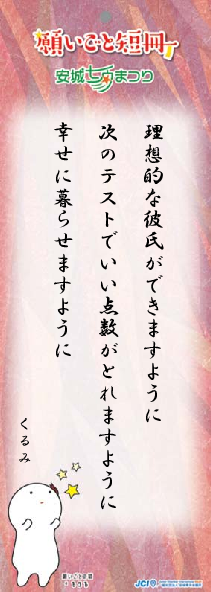 願いごと短冊
安城七夕まつり
理想的な彼氏ができますように
次のテストでいい点数がとれますように
幸せに暮らせますように
くるみ
JCI